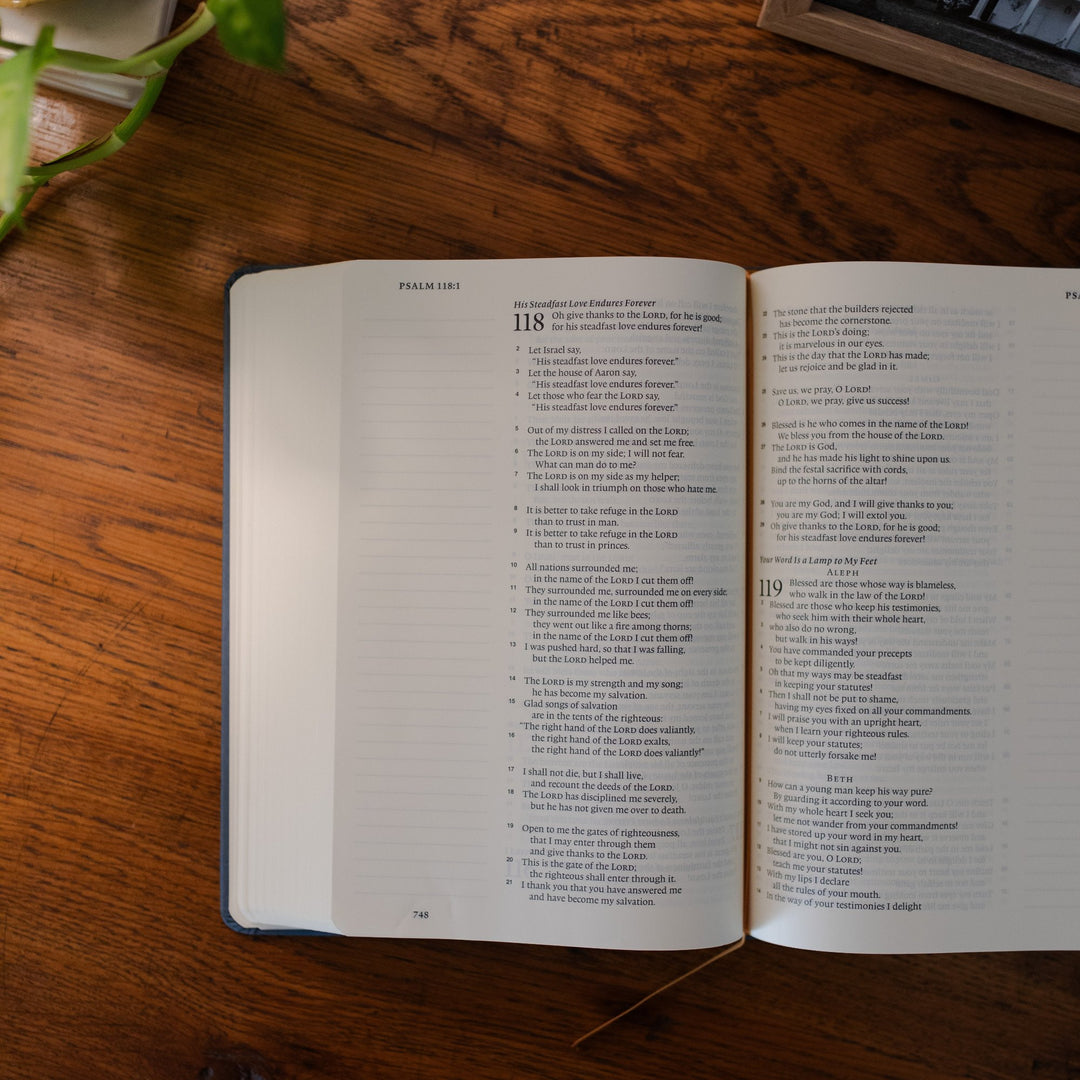 PSALM 118:1
His Steadfast Love Endures Forever
118 Oh give thanks to the LORD, for he is good;
for his steadfast love endures forever!
2 Let Israel say,
“His steadfast love endures forever.”
3 Let the house of Aaron say,
“His steadfast love endures forever.”
4 Let those who fear the LORD say,
“His steadfast love endures forever.”
5 Out of my distress I called on the LORD;
the LORD answered me and set me free.
6 The LORD is on my side; I will not fear.
What can man do to me?
7 The LORD is on my side as my helper;
I shall look in triumph on those who hate me.
8 It is better to take refuge in the LORD
than to trust in man.
9 It is better to take refuge in the LORD
than to trust in princes.
10 All nations surrounded me;
in the name of the LORD I cut them off!
11 They surrounded me, surrounded me on every side;
in the name of the LORD I cut them off!
12 They surrounded me like bees;
they went out like a fire among thorns;
in the name of the LORD I cut them off!
13 I was pushed hard, so that I was falling,
but the LORD helped me.
14 The LORD is my strength and my song;
he has become my salvation.
15 Glad songs of salvation
are in the tents of the righteous:
“The right hand of the LORD does valiantly,
16 the right hand of the LORD exalts,
the right hand of the LORD does valiantly!”
17 I shall not die, but I shall live,
and recount the deeds of the LORD.
18 The LORD has disciplined me severely,
but he has not given me over to death.
19 Open to me the gates of righteousness,
that I may enter through them
and give thanks to the LORD.
20 This is the gate of the LORD;
the righteous shall enter through it.
21 I thank you that you have answered me
and have become my salvation.
748
PSA
22 The stone that the builders rejected
has become the cornerstone.
23 This is the LORD's doing;
it is marvelous in our eyes.
24 This is the day that the LORD has made;
let us rejoice and be glad in it.
25 Save us, we pray, O LORD!
O LORD, we pray, give us success!
26 Blessed is he who comes in the name of the LORD!
We bless you from the house of the LORD.
27 The LORD is God,
and he has made his light to shine upon us.
Bind the festal sacrifice with cords,
up to the horns of the altar!
28 You are my God, and I will give thanks to you;
you are my God; I will extol you.
29 Oh give thanks to the LORD, for he is good;
for his steadfast love endures forever!
Your Word Is a Lamp to My Feet
ALEPH
119 Blessed are those whose way is blameless,
who walk in the law of the LORD!
2 Blessed are those who keep his testimonies,
who seek him with their whole heart,
3 who also do no wrong,
but walk in his ways!
4 You have commanded your precepts
to be kept diligently.
5 Oh that my ways may be steadfast
in keeping your statutes!
6 Then I shall not be put to shame,
having my eyes fixed on all your commandments.
7 I will praise you with an upright heart,
when I learn your righteous rules.
8 I will keep your statutes;
do not utterly forsake me!
BETH
9 How can a young man keep his way pure?
By guarding it according to your word.
10 With my whole heart I seek you;
let me not wander from your commandments!
11 I have stored up your word in my heart,
that I might not sin against you.
12 Blessed are you, O LORD;
teach me your statutes!
13 With my lips I declare
all the rules of your mouth.
14 In the way of your testimonies I delight